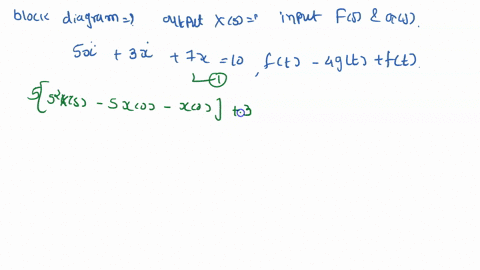 block diagram =? output X(s) =? input F(s) & G(s).
5ẍ + 3ẋ + 7x = 10 , f(t) - 4g(t) + f(t)
①
5[s²X(s) - sx(0) - ẋ(0)] + 3